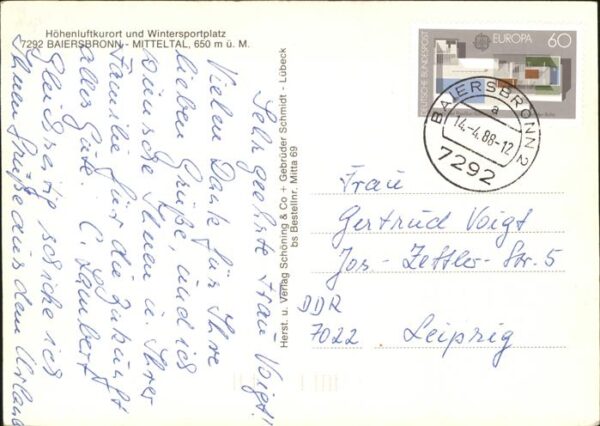 Höhenluftkurort und Wintersportplatz
7292 BAIERSBRONN - MITTELTAL, 650 m ü. M.
Sehr geehrte Frau Voigt!
Vielen Dank für Ihre
lieben Grüße, und ich
wünsche Ihnen u. Ihrer
Familie für die Zukunft
alles Gute. C. Lambert
Gleichzeitig schicke ich
Ihnen Grüße aus dem Urlaub
Herst. u. Verlag Schöning & Co + Gebrüder Schmidt - Lübeck
bs Bestellnr. Mitta 69
DEUTSCHE BUNDESPOST
EUROPA 60
BAIERSBRONN 2
a
14.-4.88-12
7292
Frau
Gertrud Voigt
Jos-Zettler-Str. 5
DDR
7022 Leipzig